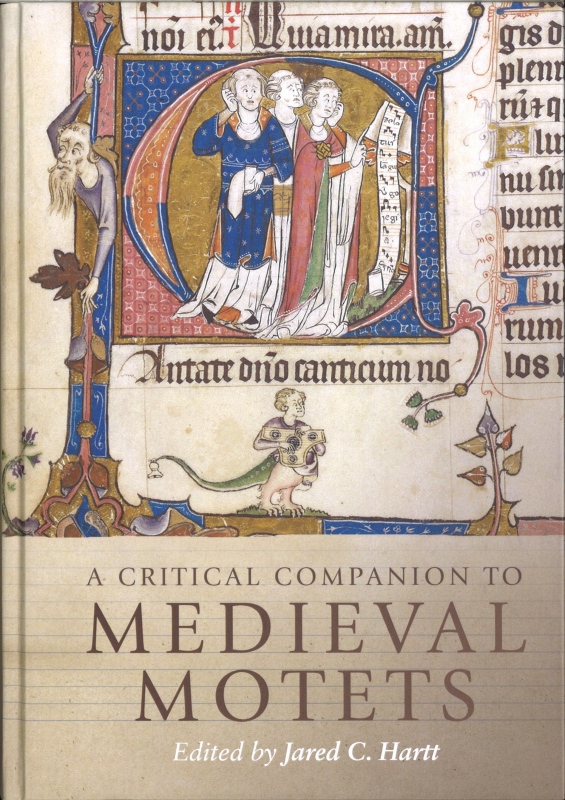 nōi eī.
Quia mira. am̄.
Antate dnō canticum no
gis d
plenr
uent
rum
los
A CRITICAL COMPANION TO
MEDIEVAL
MOTETS
Edited by Jared C. Hartt